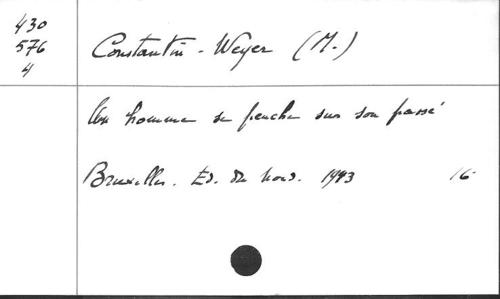 430
576
4
Constantin-Weyer (M.)
Un homme se penche sur son passé
Bruxelles. Ed. du Nord. 1943 16